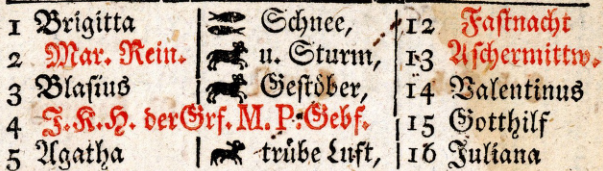 1 Brigitta Schnee, 12 Fastnacht
2 Mar. Rein. u. Sturm, 13 Aschermittw.
3 Blasius Gestöber, 14 Valentinus
4 J. K. H. der Grf. M. P. Gebf. 15 Gotthilf
5 Agatha trübe Luft, 16 Juliana